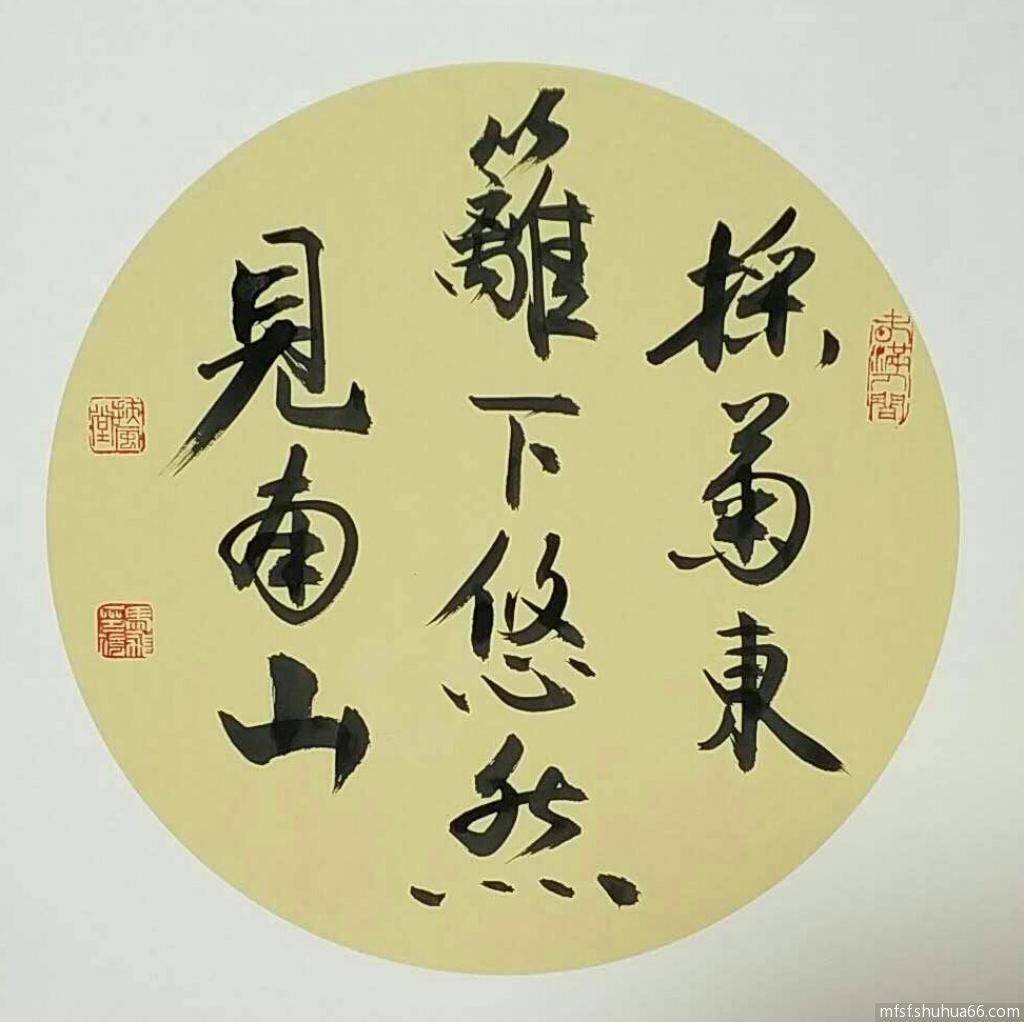 採菊東
籬下悠然
見南山
mfsf.shuhua66.com